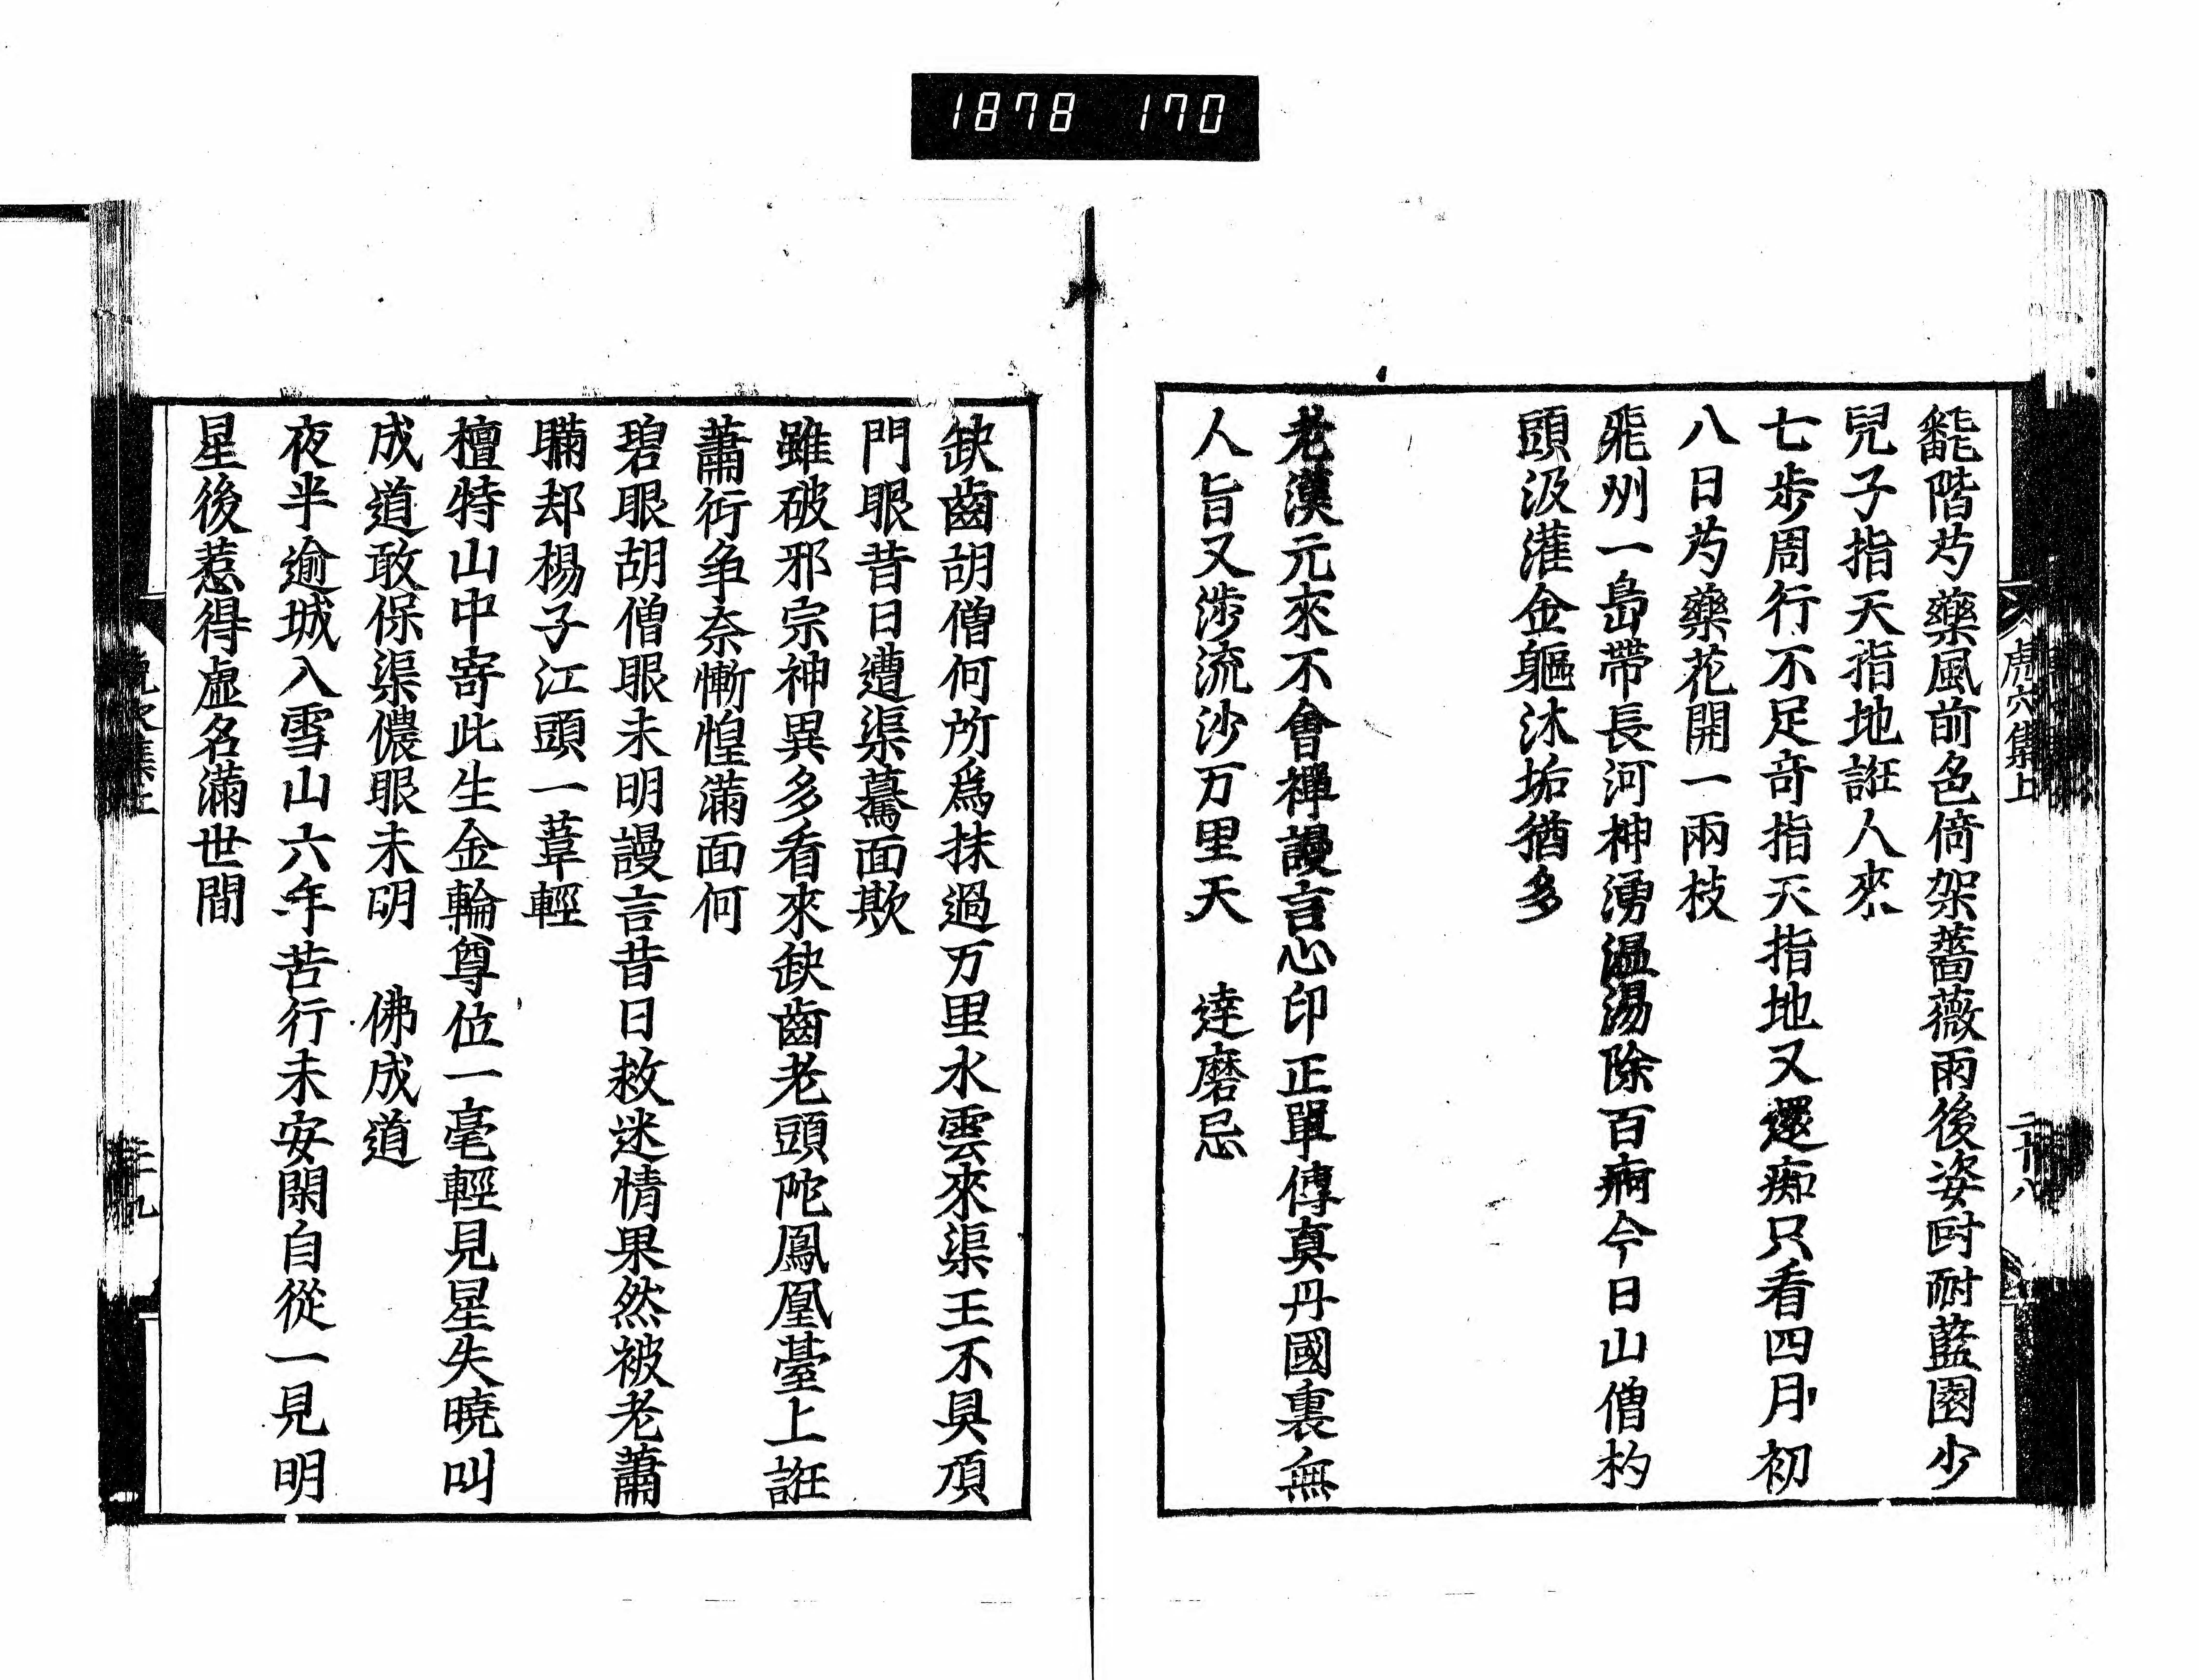 1878 170
虎穴集上
二十八
飜階芍藥風前色倚架薔薇雨後姿時耐藍園少
兒子指天指地誑人來
七歩周行不足奇指天指地又還痴只看四月初
八日芍藥花開一兩枝
飛州一島帶長河神湧温湯除百痾今日山僧杓
頭汲灌金軀沐垢猶多
老漢元來不會禪謾言心印正單傳真丹國裏無
人旨又渉流沙万里天　達磨忌
缺齒胡僧何所爲抹過万里水雲來渠王不具頂
門眼昔日遭渠驀面欺
雖破邪宗神異多看來缺齒老頭陀鳳凰臺上誑
蕭衍争奈慚惶滿面何
碧眼胡僧眼未明謾言昔日救迷情果然被老蕭
瞞却楊子江頭一葦輕
檀特山中寄此生金輪尊位一毫輕見星失曉叫
成道敢保渠儂眼未明　佛成道
夜半逾城入雪山六年苦行未安閑自從一見明
星後惹得虛名滿世間